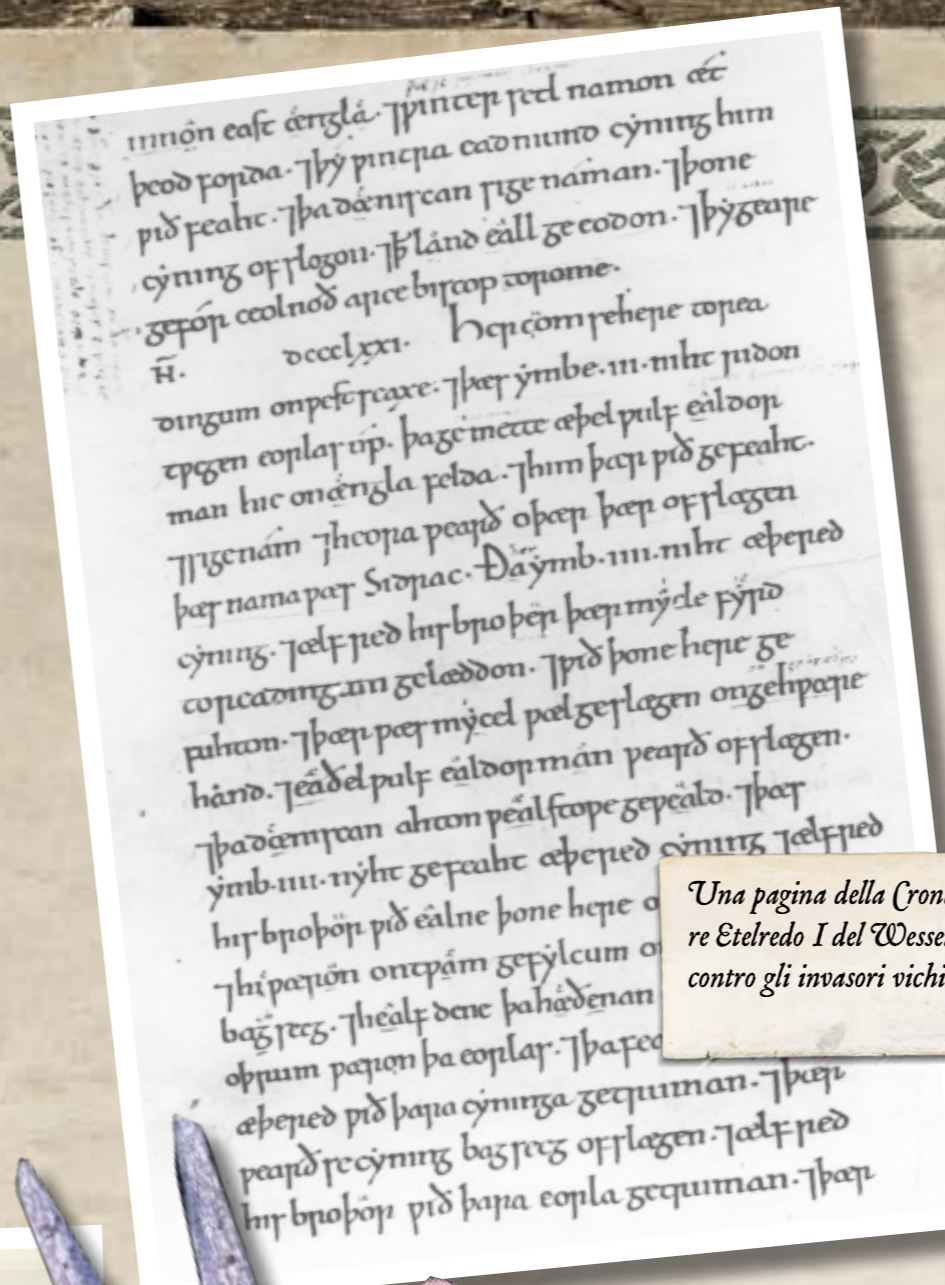 innon east ængla. ⁊ƿinter setl namon æt
þeod forda. ⁊þy ƿintra eadmund cyning him
ƿið feaht. ⁊þa dæniscan sige naman. ⁊þone
cyning ofslogon. ⁊þ̄ land eall ge eodon. ⁊þy geare
gefor ceolnoð arce biscop to rome.
H̄. dccclxxi. Her com se here to rea
dingum on ƿest seaxe. ⁊þæs ymbe .iii. niht ridon
tƿegen eorlas up. þa ge mette æþelƿulf ealdor
man hie on ængla felda. ⁊him þær ƿið gefeaht.
⁊sige nam ⁊heora ƿearð oþær þær ofslægen
þæs nama ƿæs Sidrac. Ða ymb .iiii. niht æþered
cyning. ⁊ælfred his broþer þær mycle fyrd
to readingum gelæddon. ⁊ƿið þone here ge
fuhton. ⁊þær ƿæs mycel ƿæl geslægen on gehƿære
hand. ⁊eaðelƿulf ealdorman ƿearð ofslægen.
⁊þa dæniscan ahton ƿælstoƿe geƿeald. ⁊þæs
ymb .iiii. nyht gefeaht æþered cyning ⁊ælfred
his broþor ƿið ealne þone here o
⁊hi ƿæron on tƿam gefylcum o
bagsecg. ⁊healfdene þa hæðenan
oþrum ƿæron þa eorlas. ⁊þa fea
æþered ƿið þara cyninga getruman. ⁊þær
ƿearð se cyning bagsecg ofslægen. ⁊ælfred
his broþor ƿið þara eorla getruman. ⁊þær
Una pagina della Cron
re Etelredo I del Wesse
contro gli invasori vichi